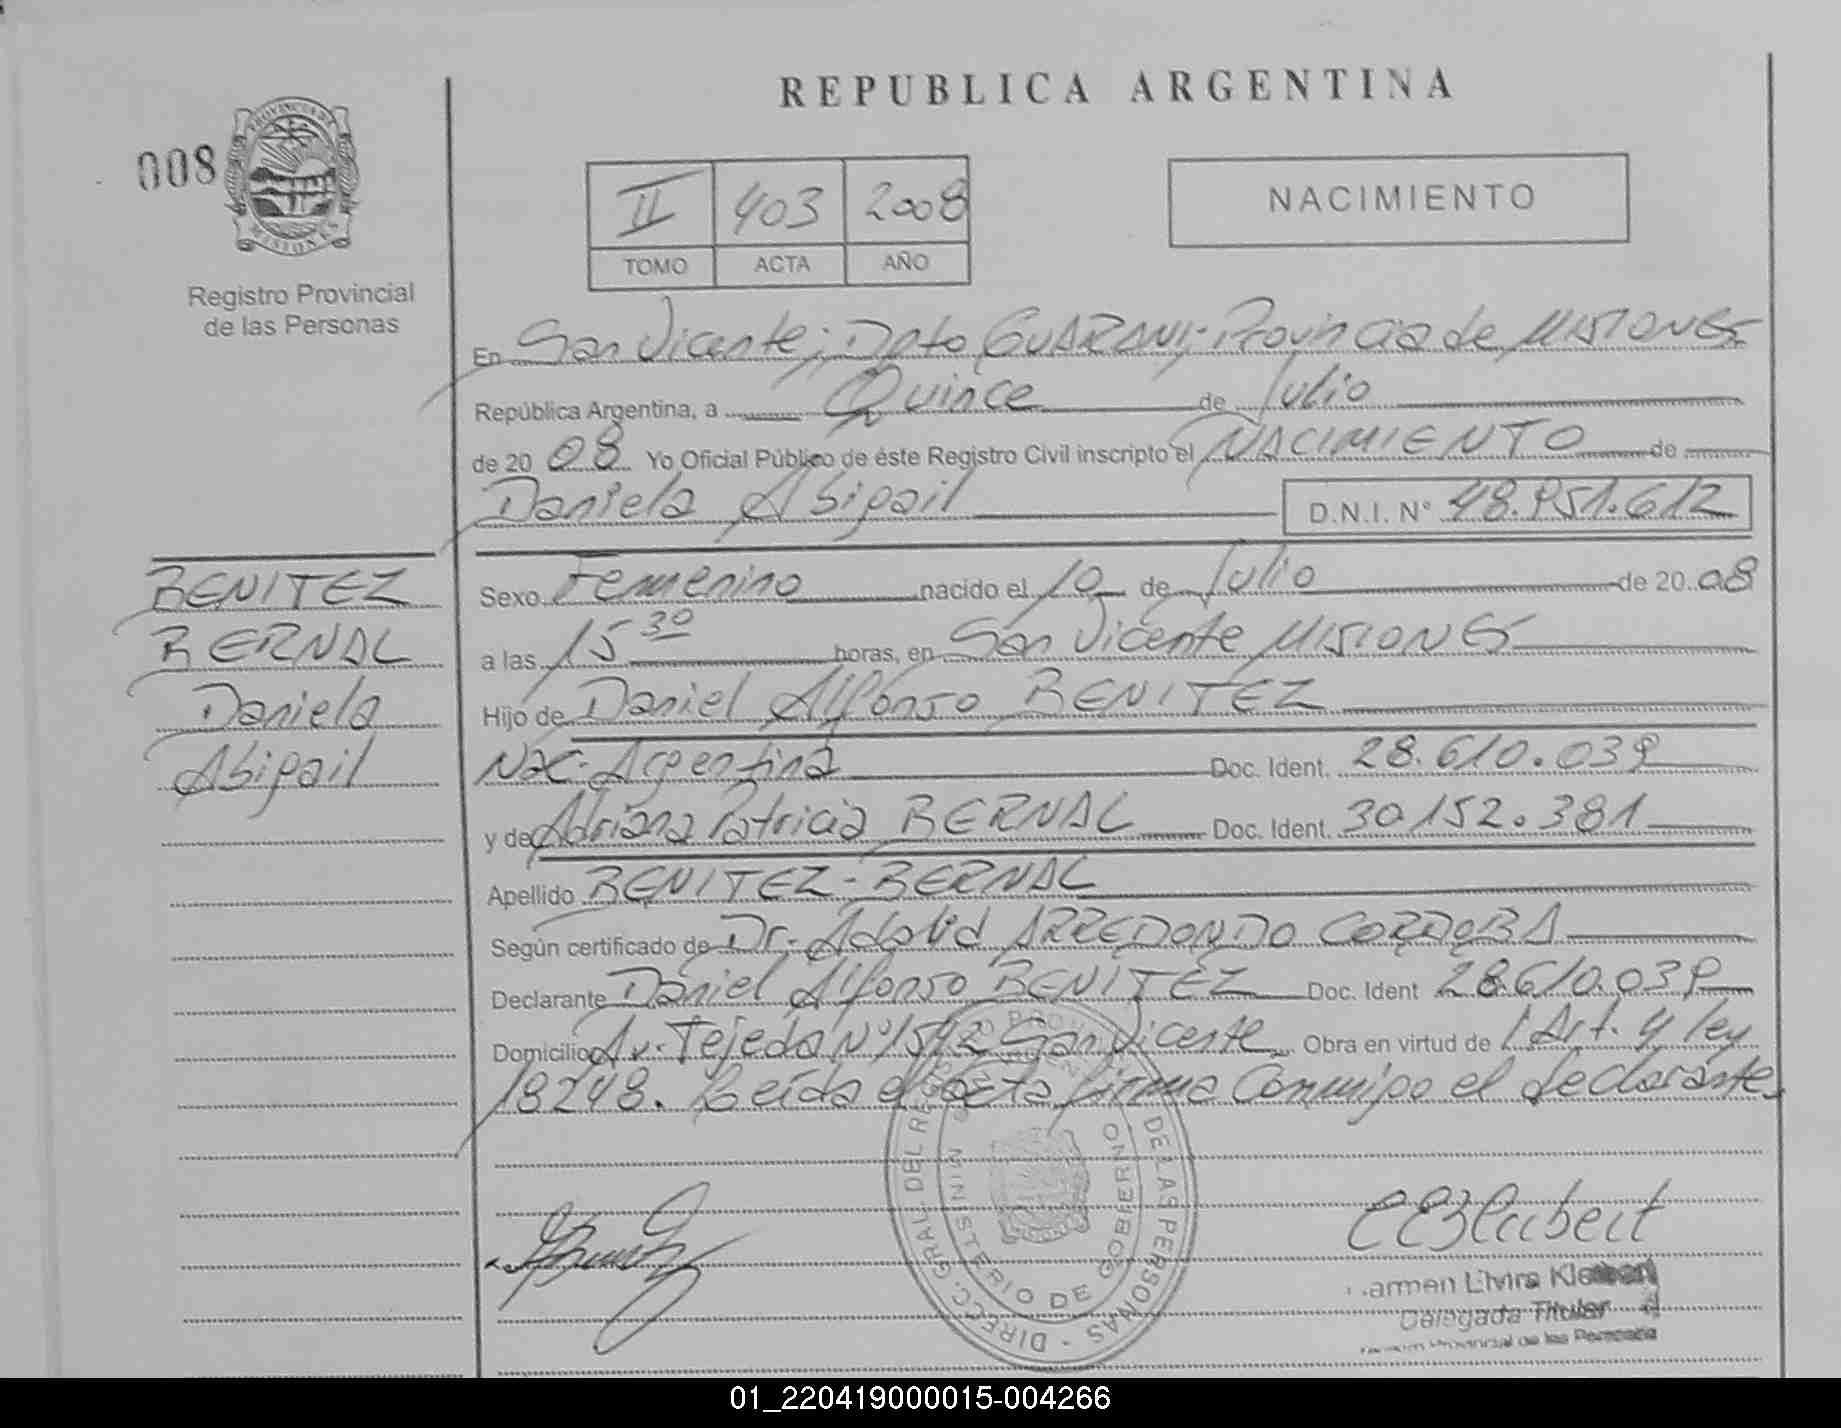 REPUBLICA ARGENTINA
008
PROVINCIA DE MISIONES
Registro Provincial
de las Personas
II 403 2008
TOMO ACTA AÑO
NACIMIENTO
En San Vicente; Dpto GUARANI; Provincia de MISIONES
República Argentina, a Quince de Julio
de 2008 Yo Oficial Público de éste Registro Civil inscripto el NACIMIENTO de
Daniela Abigail D.N.I. N° 48.951.612
BENITEZ
BERNAL
Daniela
Abigail
Sexo Femenino nacido el 10 de Julio de 2008
a las 15 30 horas, en San Vicente MISIONES
Hijo de Daniel Alfonso BENITEZ
Nac. Argentina Doc. Ident. 28.610.039
y de Adriana Patricia BERNAL Doc. Ident. 30.152.381
Apellido BENITEZ-BERNAL
Según certificado de Dr. Adalid ARREDONDO CORDOBA
Declarante Daniel Alfonso BENITEZ Doc. Ident 28.610.039
Domicilio Av. Tejeda N° 1542 San Vicente Obra en virtud de l Art. 4 ley
18248. Leída el acta firma Conmigo el declarante
DIRECC. GRAL. DEL DE LAS PERSONAS
MINISTERIO DE GOBIERNO
Elvira
Delegada Titular
Provincial de las Personas
01_220419000015-004266